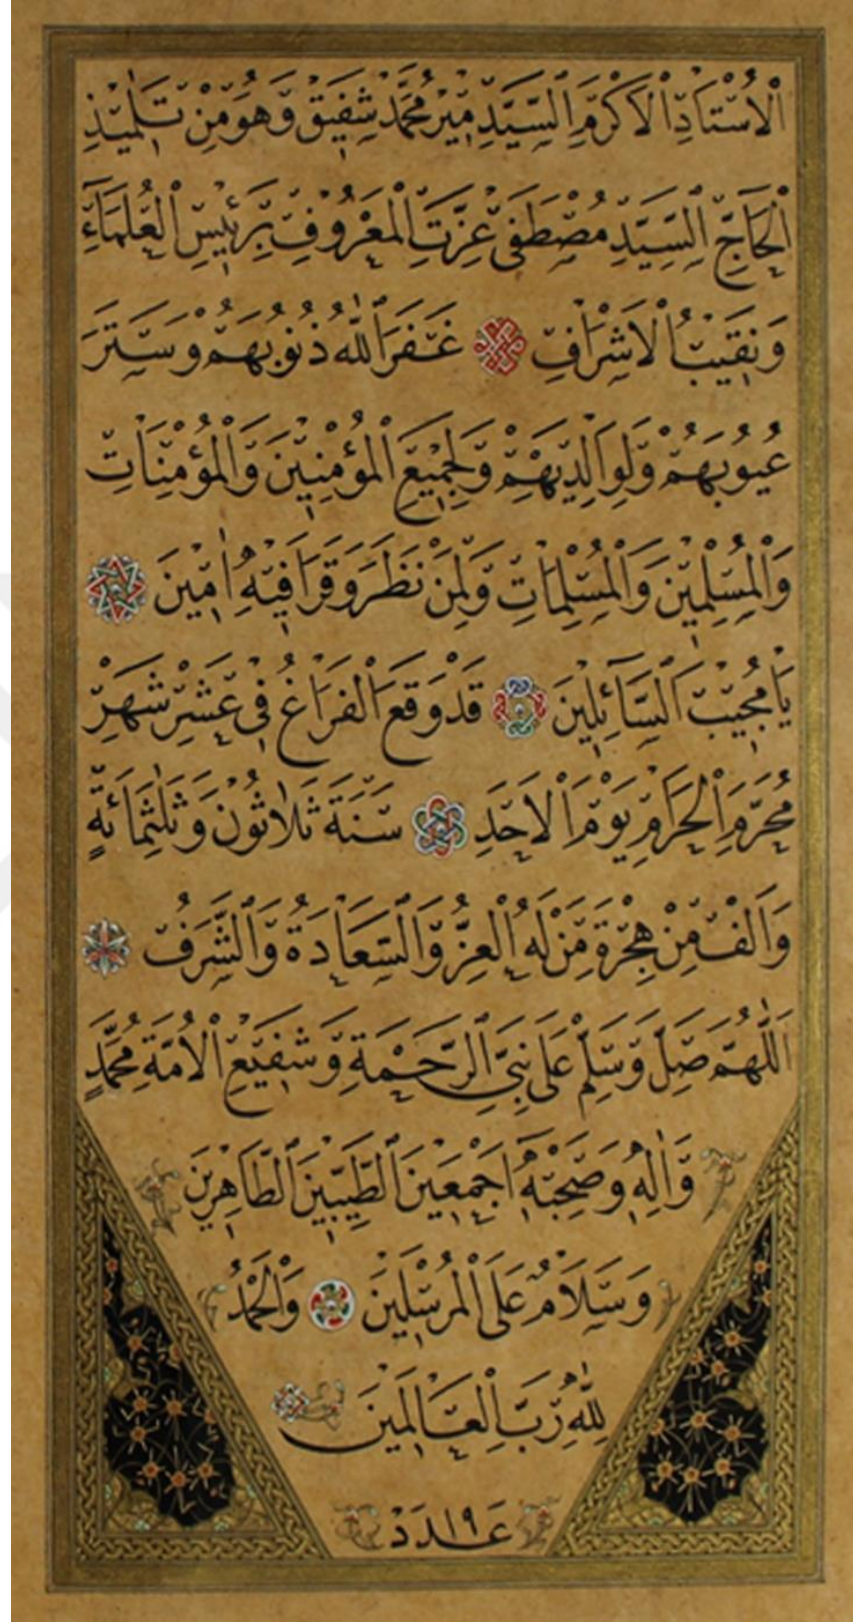 الْاُسْتَاذِ الْاَكْرَمِ السَّيِّدِ مِيرْ مُحَمَّدْ شَفِيقْ وَهُوَ مِنْ تَلَامِيذِ
الْحَاجِّ السَّيِّدِ مُصْطَفَى عِزَّتِ الْمَعْرُوفِ بِرَئِيسِ الْعُلَمَاءِ
وَنَقِيبُ الْاَشْرَافِ غَفَرَ اللّٰهُ ذُنُوبَهُمْ وَسَتَرَ
عُيُوبَهُمْ وَلِوَالِدِيهِمْ وَلِجَمِيعِ الْمُؤْمِنِينَ وَالْمُؤْمِنَاتِ
وَالْمُسْلِمِينَ وَالْمُسْلِمَاتِ وَلِمَنْ نَظَرَ وَقَرَا فِيهِ اٰمِينَ
يَا مُجِيبَ السَّآئِلِينَ قَدْ وَقَعَ الْفَرَاغُ فِي عَشْرِ شَهْرِ
مُحَرَّمِ الْحَرَامِ يَوْمَ الْاَحَدِ سَنَةَ ثَلَاثُونَ وَثَلٰثُمِائَةٍ
وَاَلْفْ مِنْ هِجْرَةِ مَنْ لَهُ الْعِزُّ وَالسَّعَادَةُ وَالشَّرَفُ
اَللّٰهُمَّ صَلِّ وَسَلِّمْ عَلَى نَبِيِّ الرَّحْمَةِ وَشَفِيعِ الْاُمَّةِ مُحَمَّدٍ
وَاٰلِهِ وَصَحْبِهِ اَجْمَعِينَ الطَّيِّبِينَ الطَّاهِرِينَ
وَسَلَامٌ عَلَى الْمُرْسَلِينَ وَالْحَمْدُ
لِلّٰهِ رَبِّ الْعَالَمِينَ
عَدَدْ ١٩